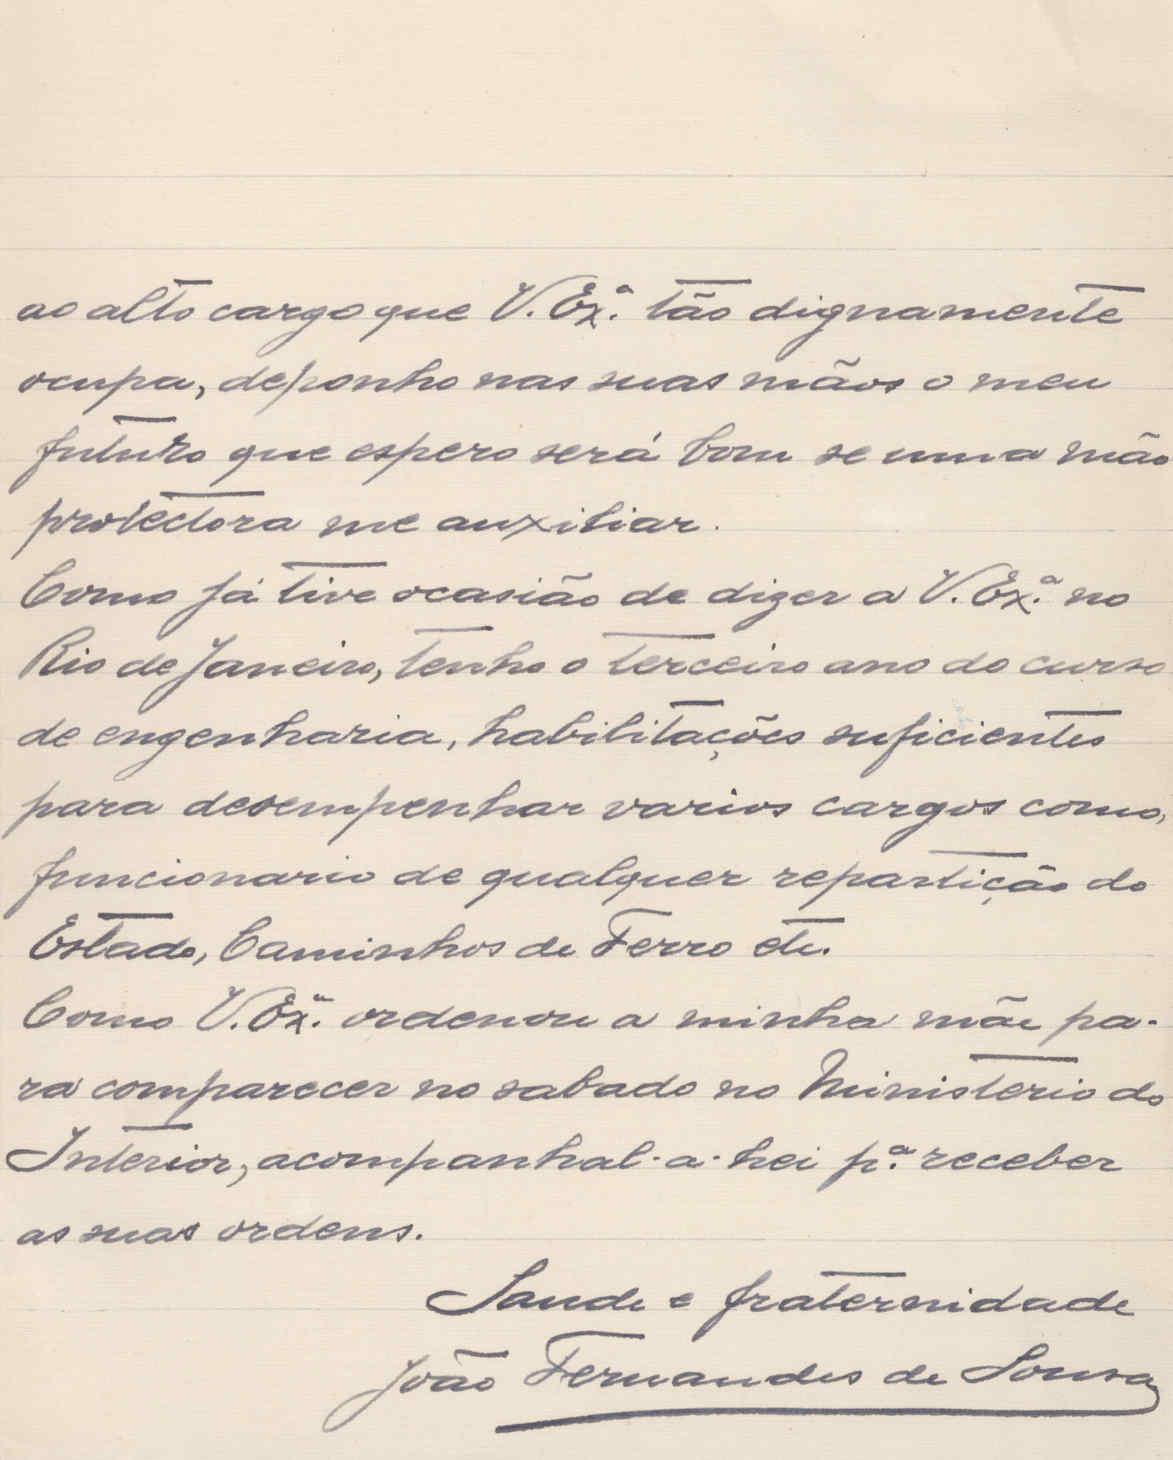 ao alto cargo que V. Ex.ª tão dignamente
ocupa, deponho nas suas mãos o meu
futuro que espero será bom se uma mão
protectora me auxiliar.
Como já tive ocasião de dizer a V. Ex.ª no
Rio de Janeiro, tenho o terceiro ano do curso
de engenharia, habilitações suficientes
para desempenhar varios cargos como,
funcionario de qualquer repartição do
Estado, Caminhos de Ferro etc.
Como V. Ex.ª ordenou a minha mãe pa-
ra comparecer no sabado no Ministerio do
Interior, acompanhal-a-hei p.ª receber
as suas ordens.
Saude e fraternidade
João Fernandes de Sousa